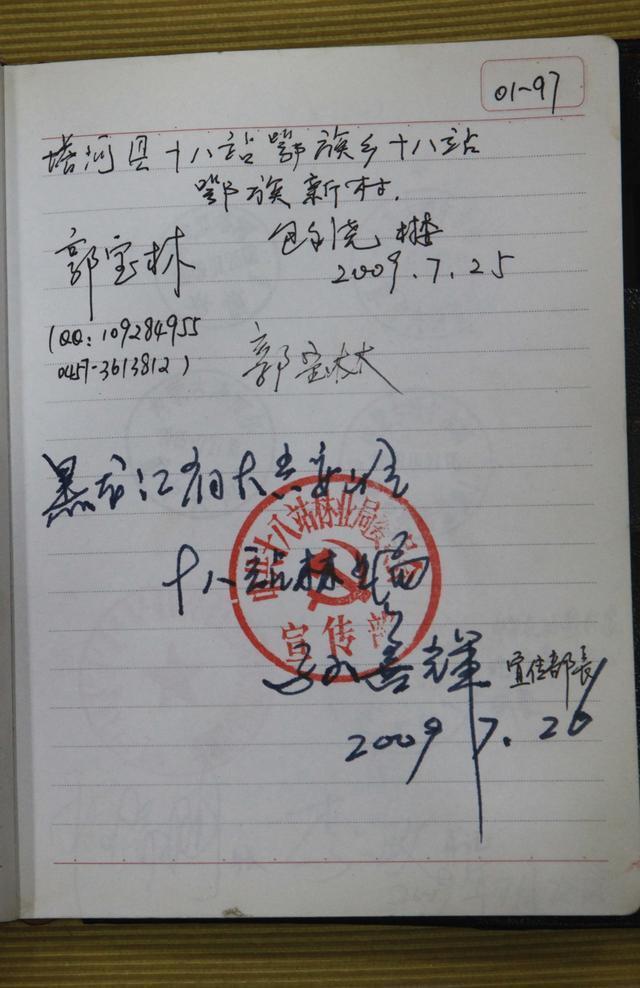 01~97
塔河县十八站鄂族乡十八站
鄂族新村.
郭宝林
2009.7.25
(QQ:109284955
0457-3613812)
郭宝林
黑龙江省大兴安岭
十八站林业局
中共十八站林业局委员会
宣传部
喜辉 宣传部长
2009.7.26